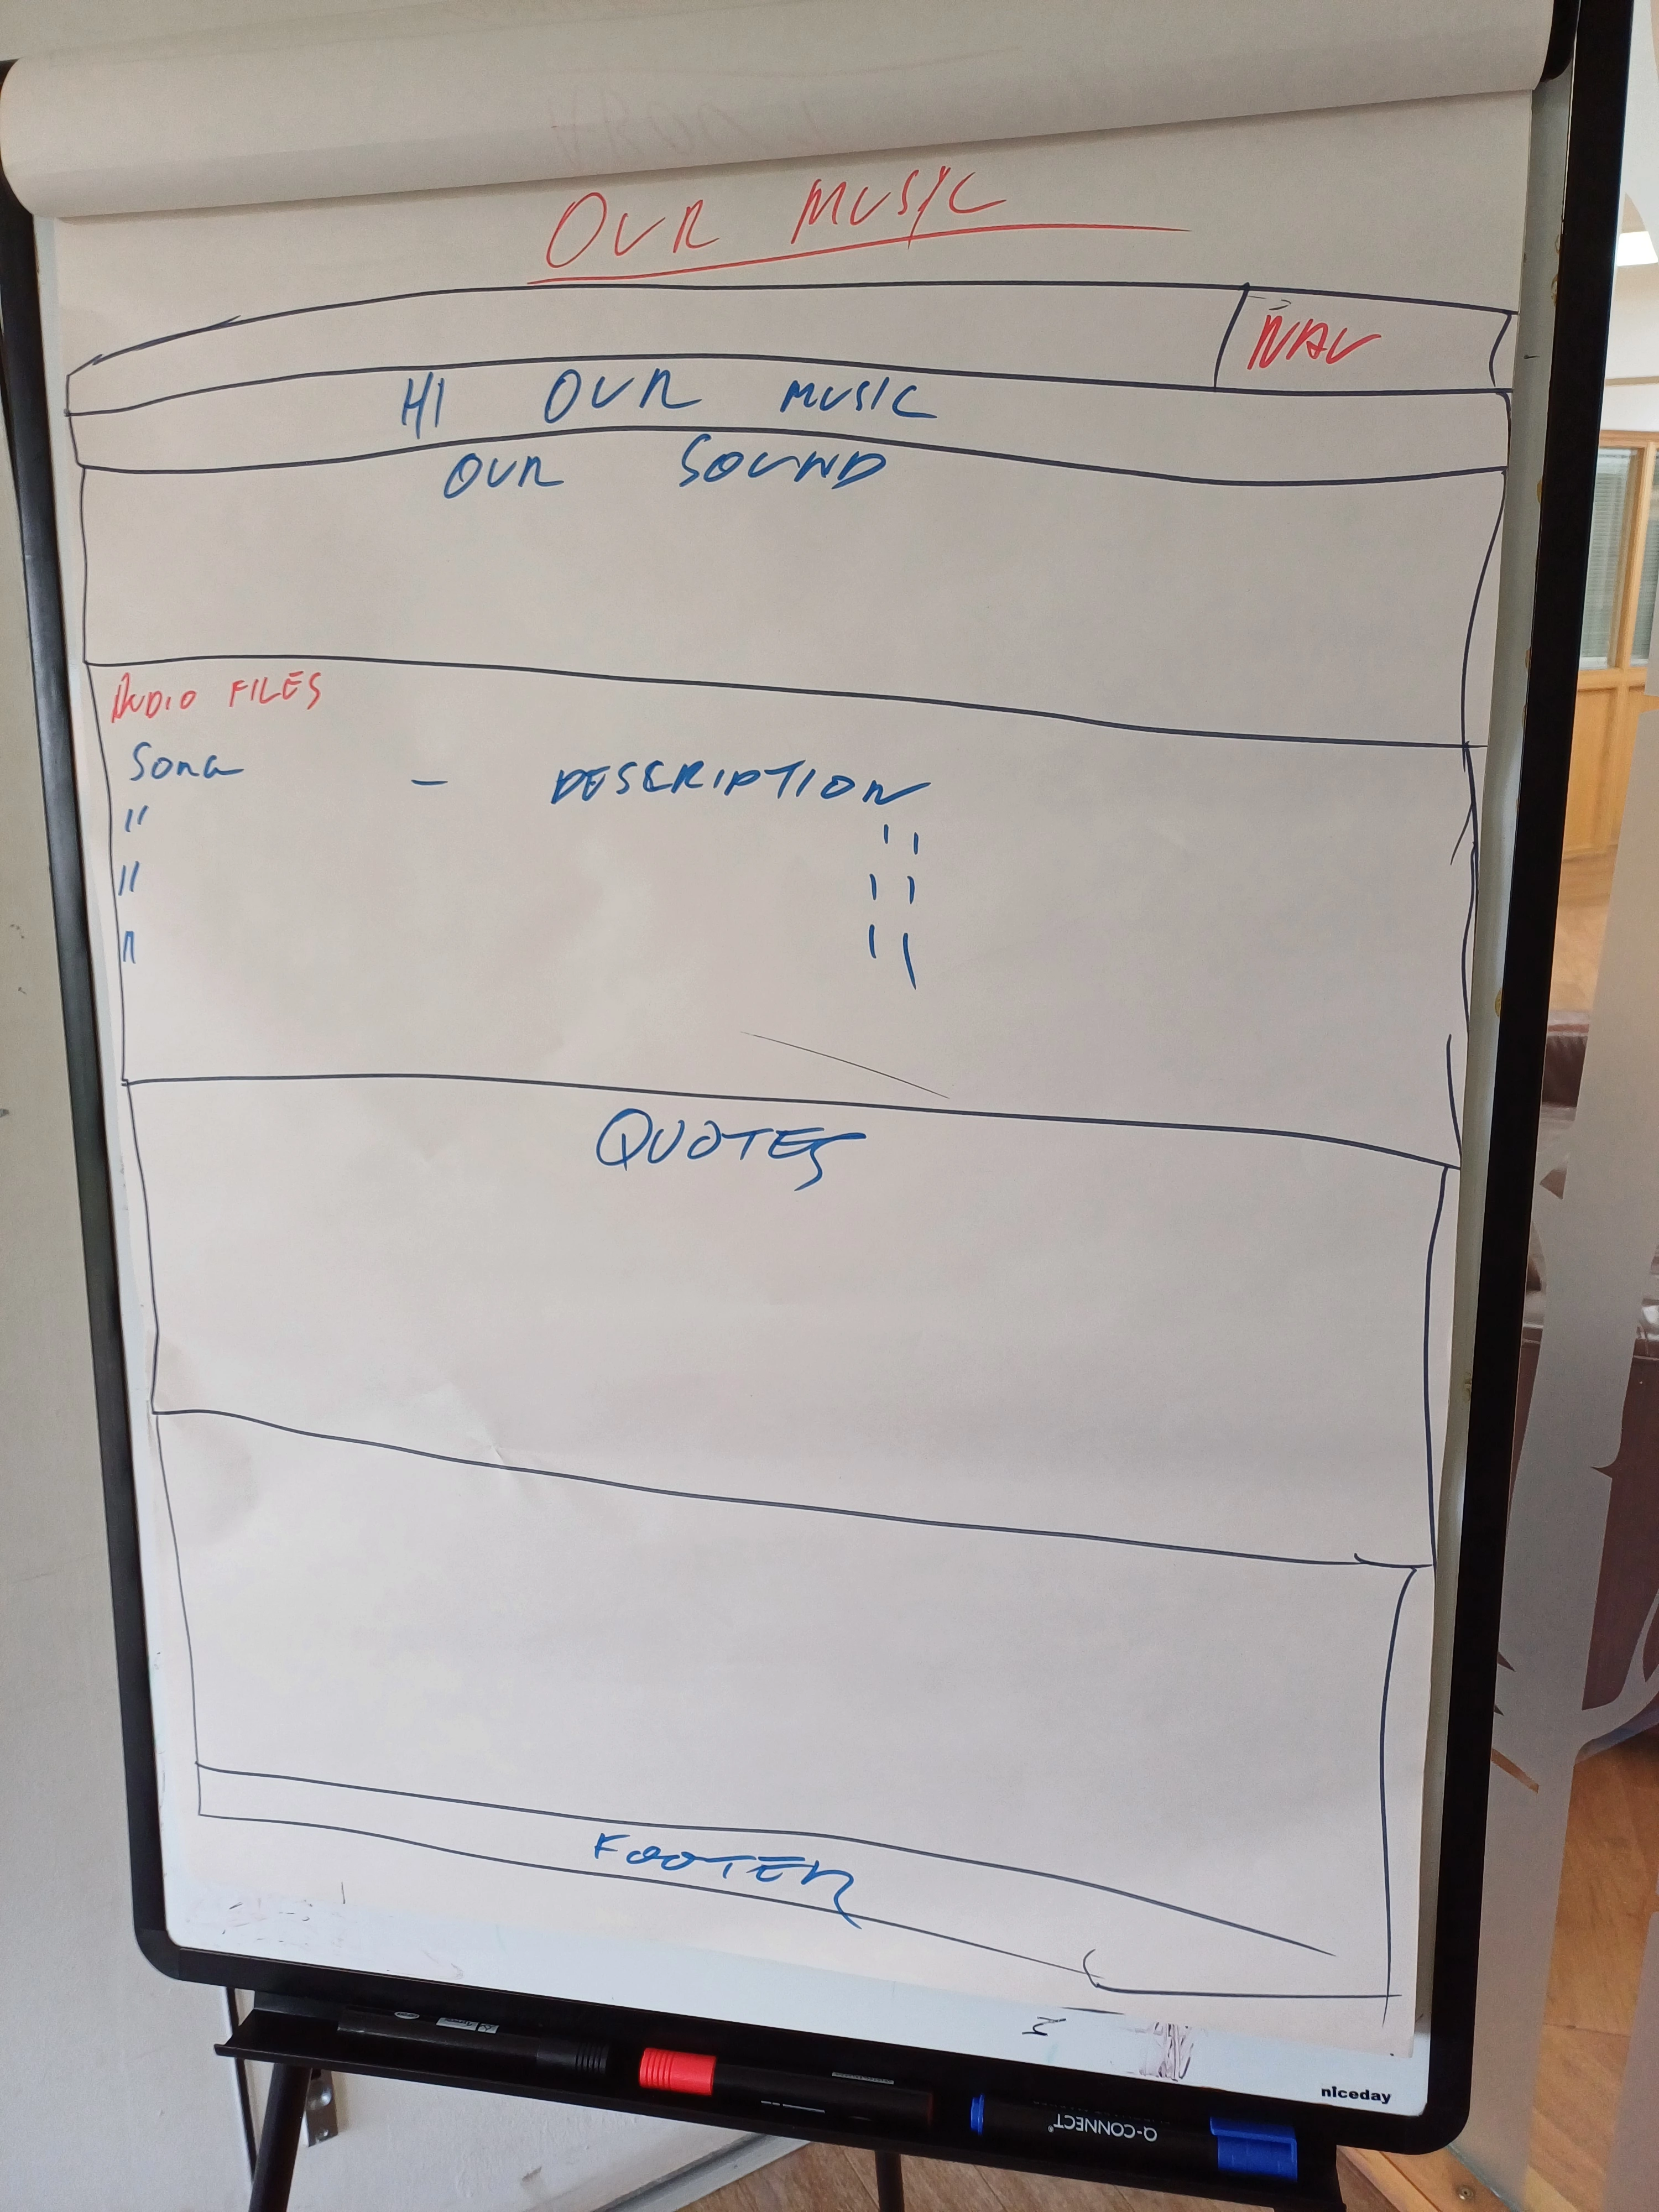 OUR MUSIC
NAV
H1 OUR MUSIC
OUR SOUND
AUDIO FILES
SONG - DESCRIPTION
" "
" "
" "
QUOTES
FOOTER
niceday
Q-CONNECT®